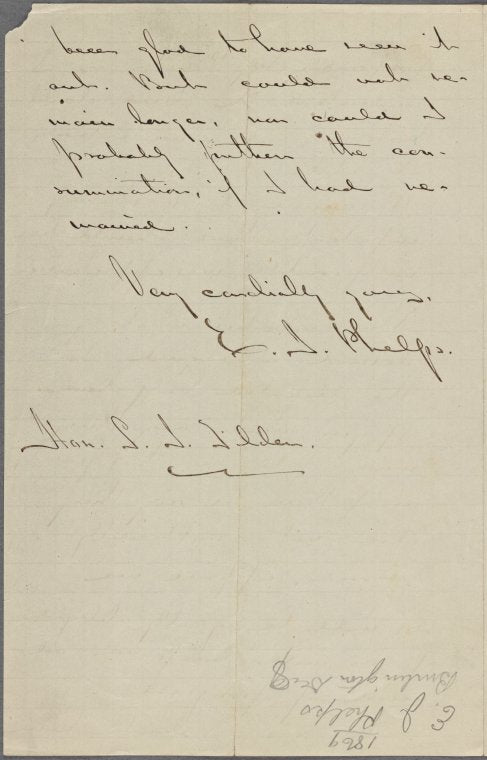 been glad to have seen it
out. But could not re-
main longer, nor could I
probably further the con-
summation, if I had re-
mained.
Very cordially yours,
E. J. Phelps.
Hon. S. J. Tilden.
1869
E. J. Phelps
Burlington